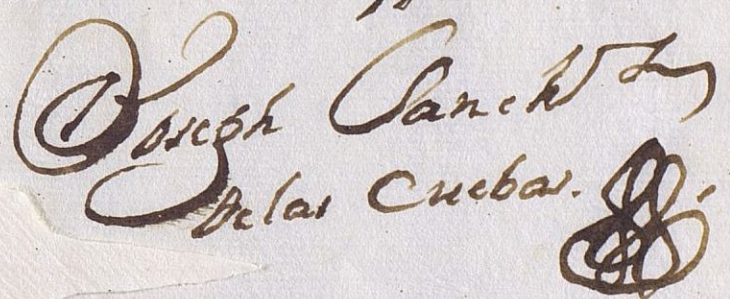 Joseph Sanchz
de las Cuebas.